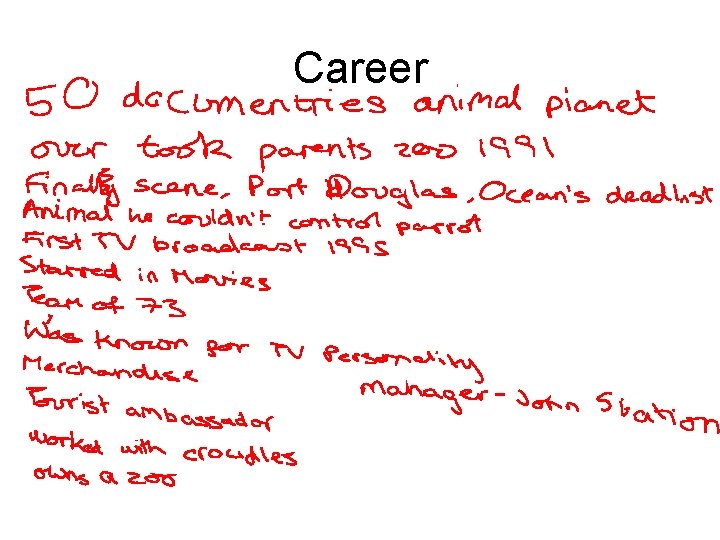 Career
50 documentries animal planet
over took parents zoo 1991
Finally scene, Port Douglas, Ocean's deadlist
Animal he couldn't control parrot
First TV broadcast 1995
Starred in Movies
Team of 73
Was known for TV Personality
Merchandise
Manager - John Station
Tourist ambassador
worked with crocidles
owns a zoo